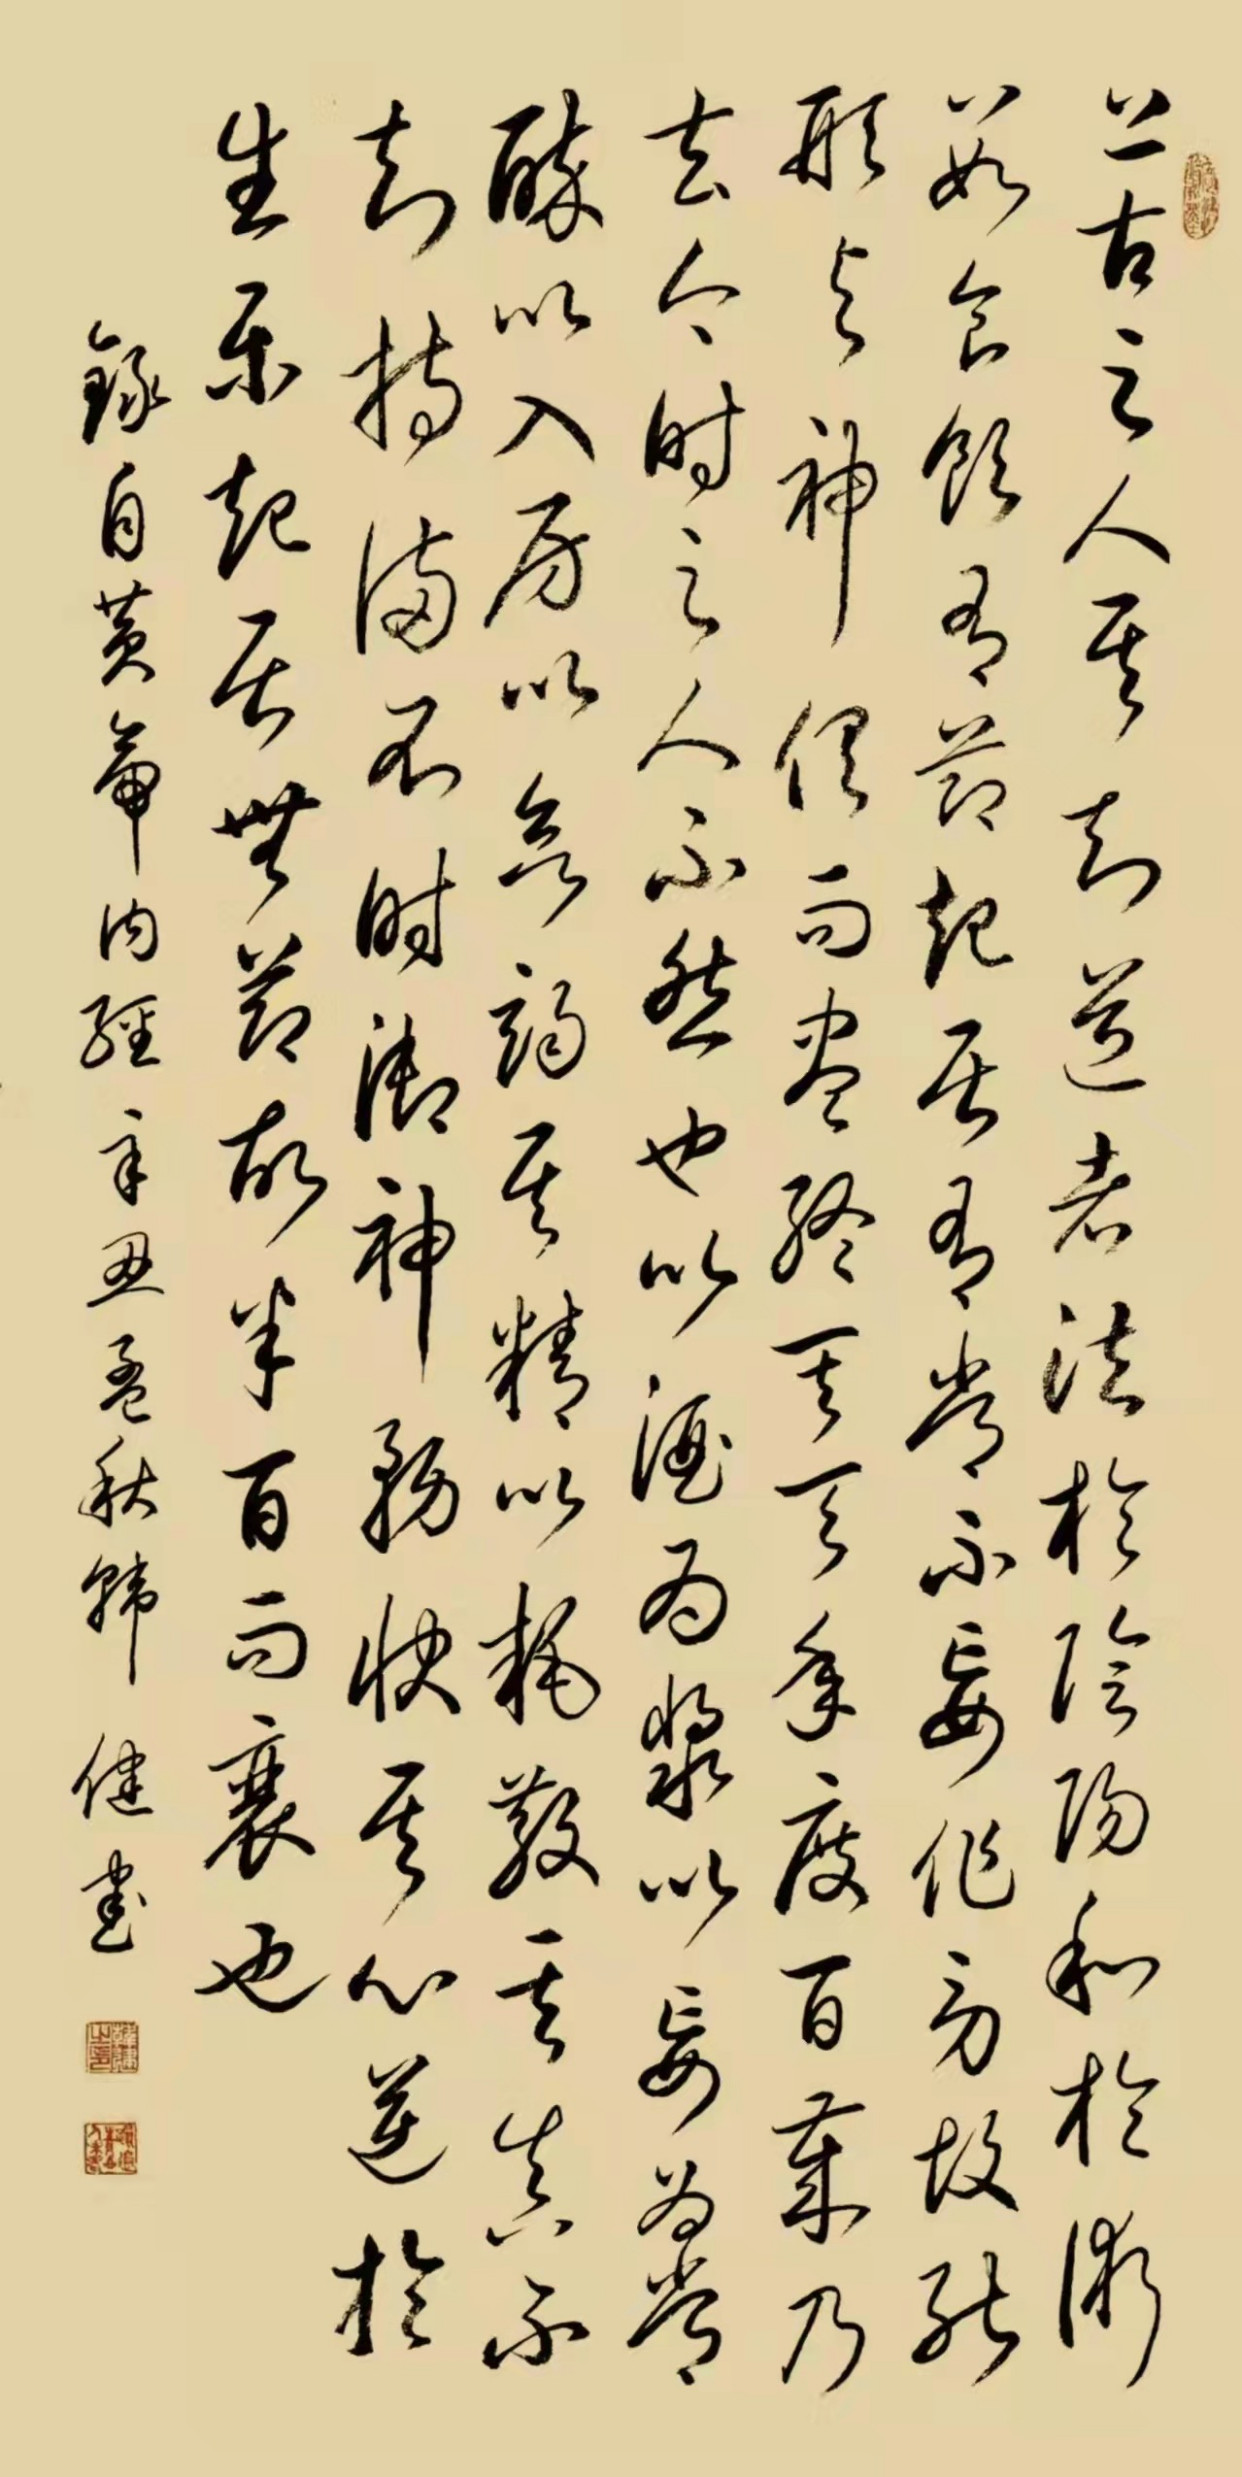 上古之人其知道者法於陰陽和於術
数食飲有節起居有常不妄作劳故能
形与神俱而尽終其天年度百歲乃
去今時之人不然也以酒為漿以妄為常
醉以入房以欲竭其精以耗散其真不
知持满不時御神務快其心逆於
生樂起居無節故半百而衰也
錄自黄帝内經辛丑孟秋韓健書